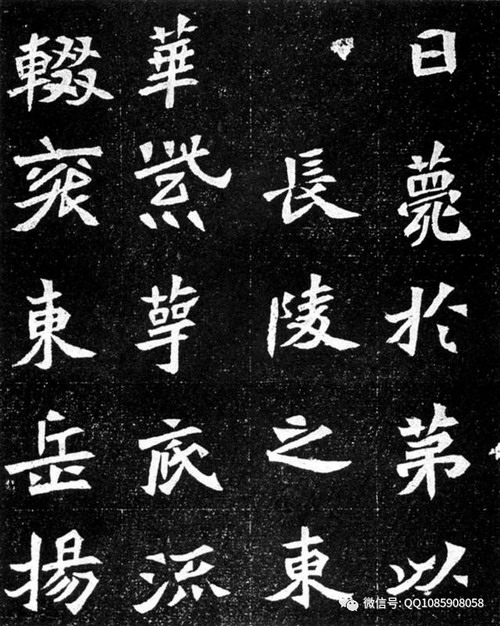 日薨於第以
長陵之東
華萼流
輟東岳揚
微信号: QQ1085908058